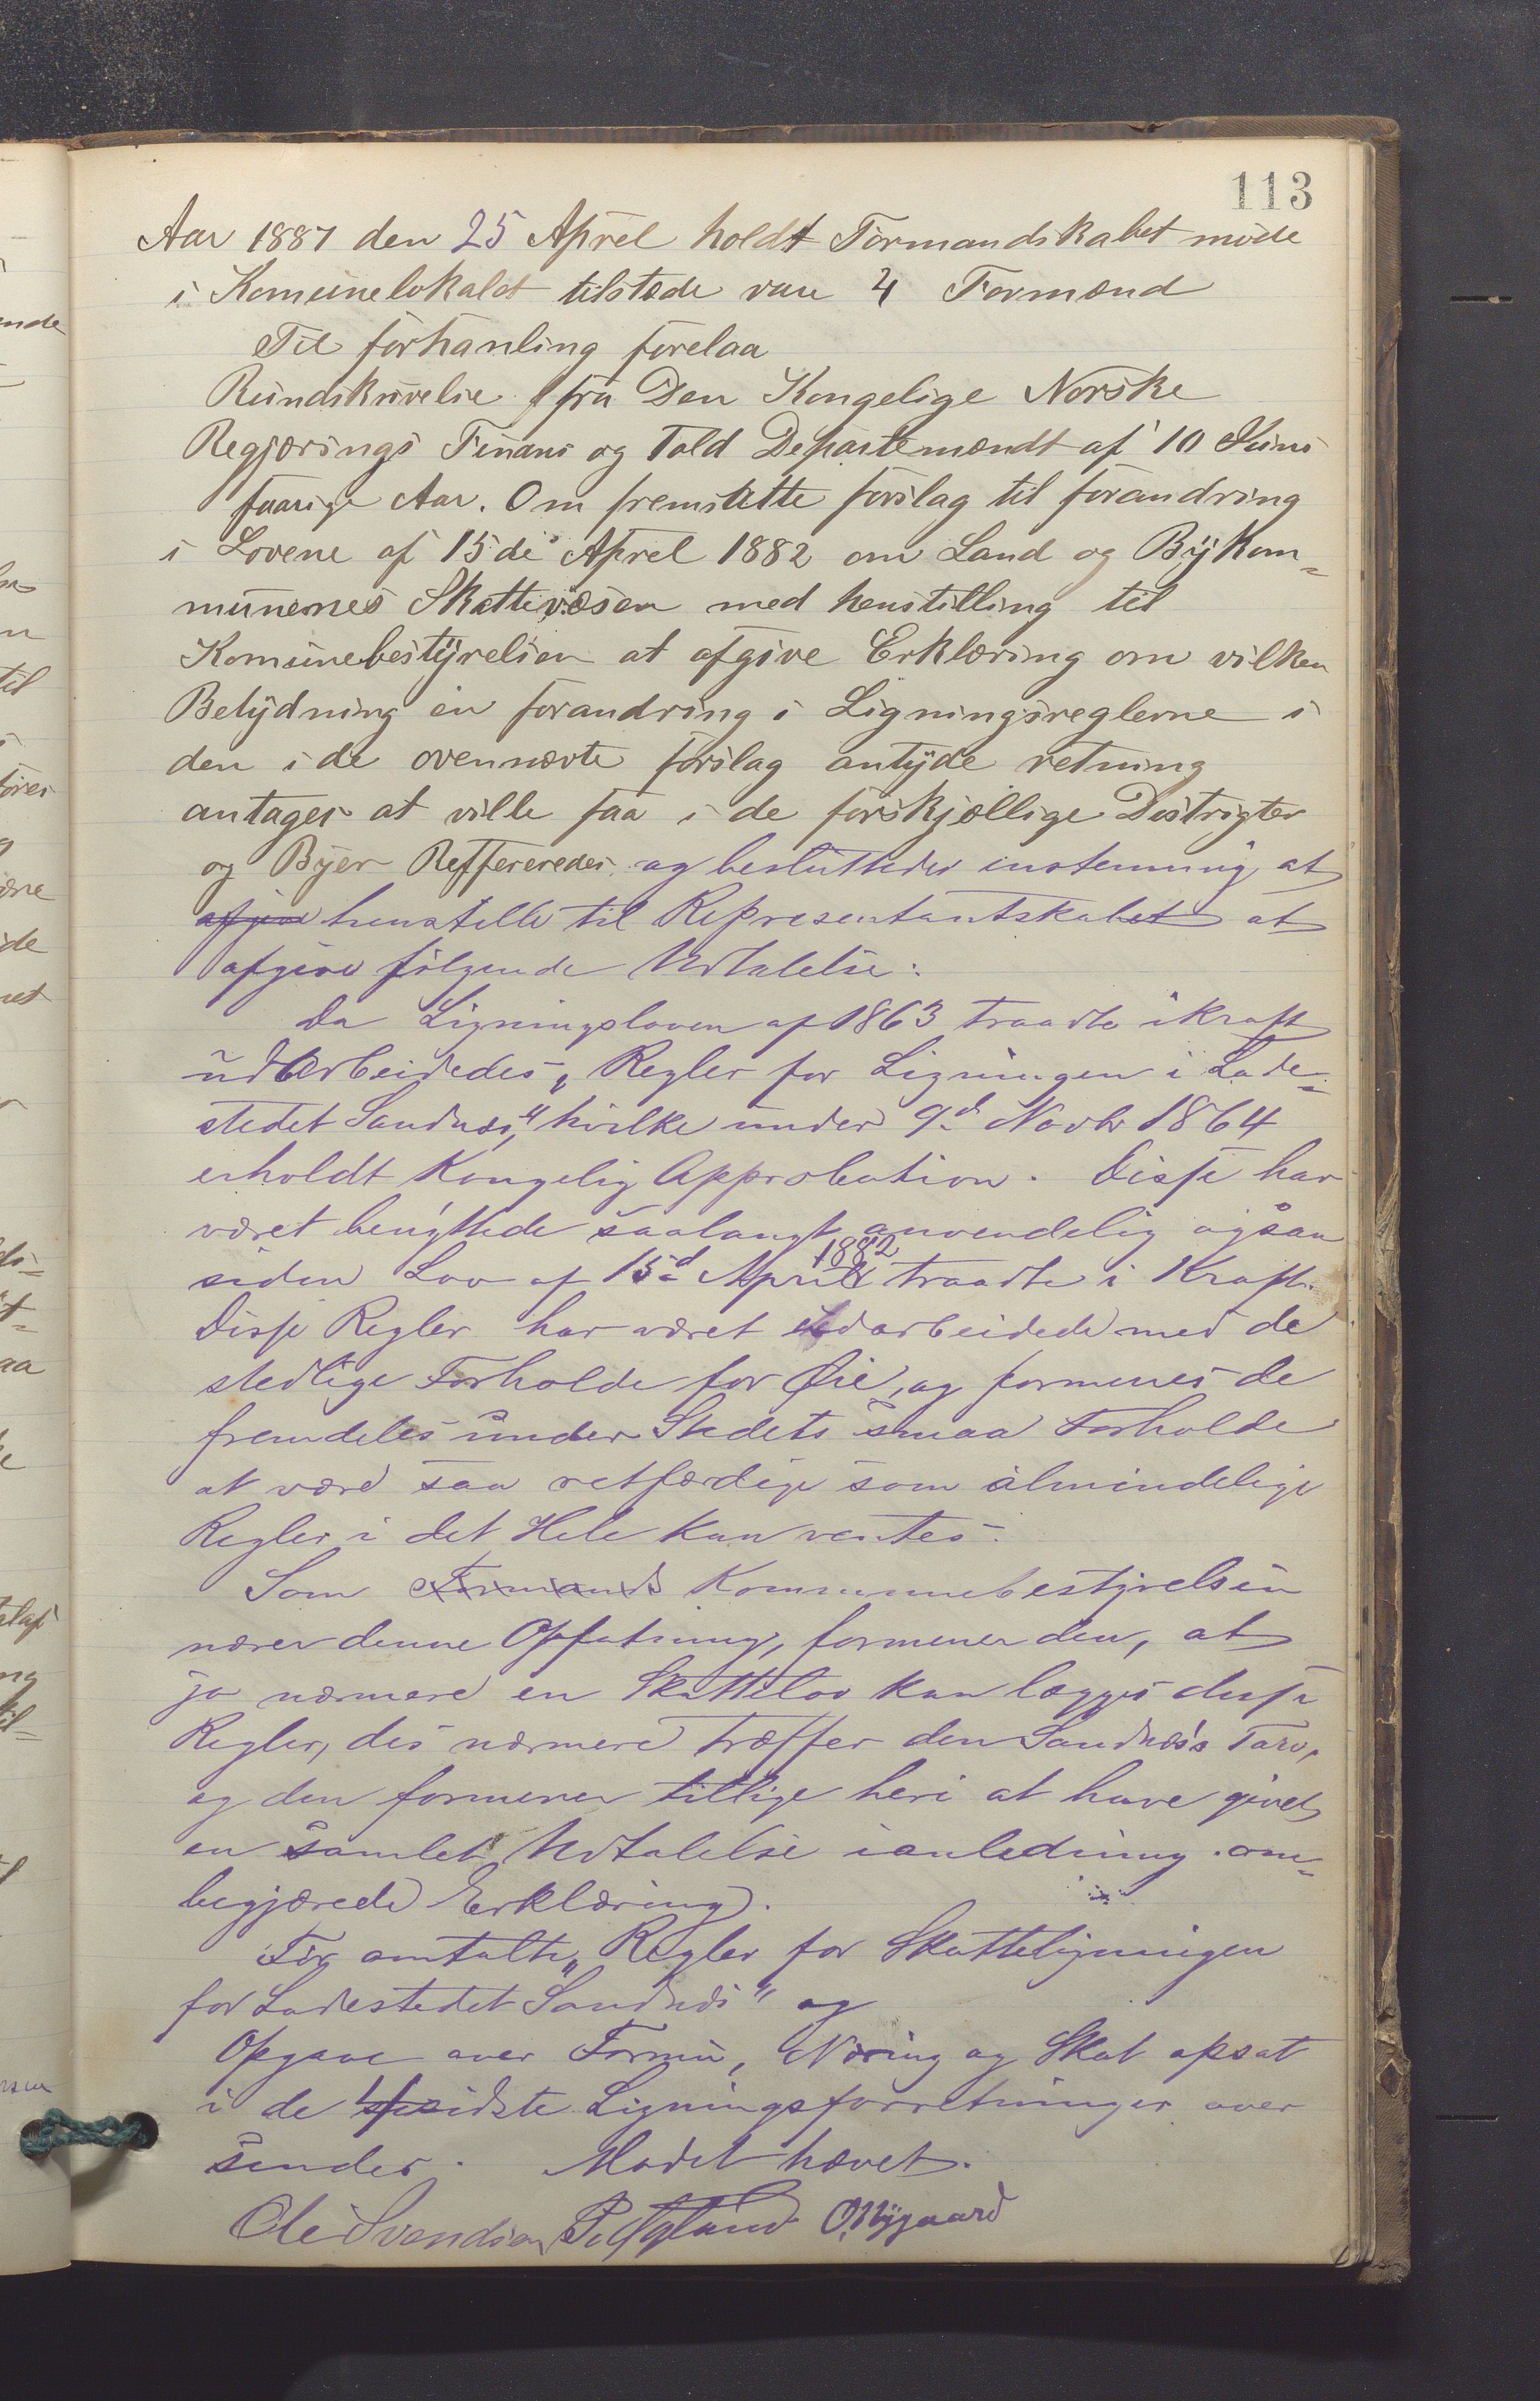 113
Aar 1887 den 25 Aprel holdt Formandskabet møde
i Komunelokalet tilstede vare 4 Formænd
Til forhanling forelaa
Rundskrivelse fra Den Kongelige Norske
Regjærings Finans og Told Departemændt af 10 Juni
faarige Aar. Om fremsatte forslag til forandring
i Lovene af 15de Aprel 1882 om Land og Bÿkom=
munernes Skattevæsen med henstilling til
Komunebestÿrelsen at afgive Erklæring om vilken
Betÿdning en forandring i Ligningsreglerne i
den i de ovennævte forslag antÿde retning
antages at ville faa i de forskjællige Distrigter
og Bÿer Reffereredes. og besluttedes enstemmig at
henstille til Representantskabet at
afgive følgende Udtalelse:
Da Ligningsloven af 1863 traadte ikraft
udarbeidedes „Regler for Ligningen i Lade=
stedet Sandnæs", hvilke under 9d Novbr 1864
erholdt Kongelig Approbation. Disse har
været benyttede saalangt anvendelig ogsaa
siden Lov af 15d April 1882 traadte i Kraft.
Disse Regler har været udarbeidede med de
stedlige Forholde for Øie, og formenes de
fremdeles under Stedets smaa Forholde
at være saa retfærdige som almindelige
Regler i det Hele kan ventes.
Som Formands Kommunebestyrelsen
nærer denne Opfatning, formener den, at
jo nærmere en Skattelov kan lægges disse
Regler, des nærmere træffer den Sandnæs's Tarv,
og den formener tillige heri at have givet
en samlet Udtalelse ianledning om=
begjærede Erklæring.
Før omtalte „Regler for Skatteligningen
for Ladestedet Sandnæs" og
Opgave over Formue, Næring og Skat opsat
i de sidste Ligningsforretninger over
sendes. Mødet hævet.
Ole Svendsen O. Nÿgaard